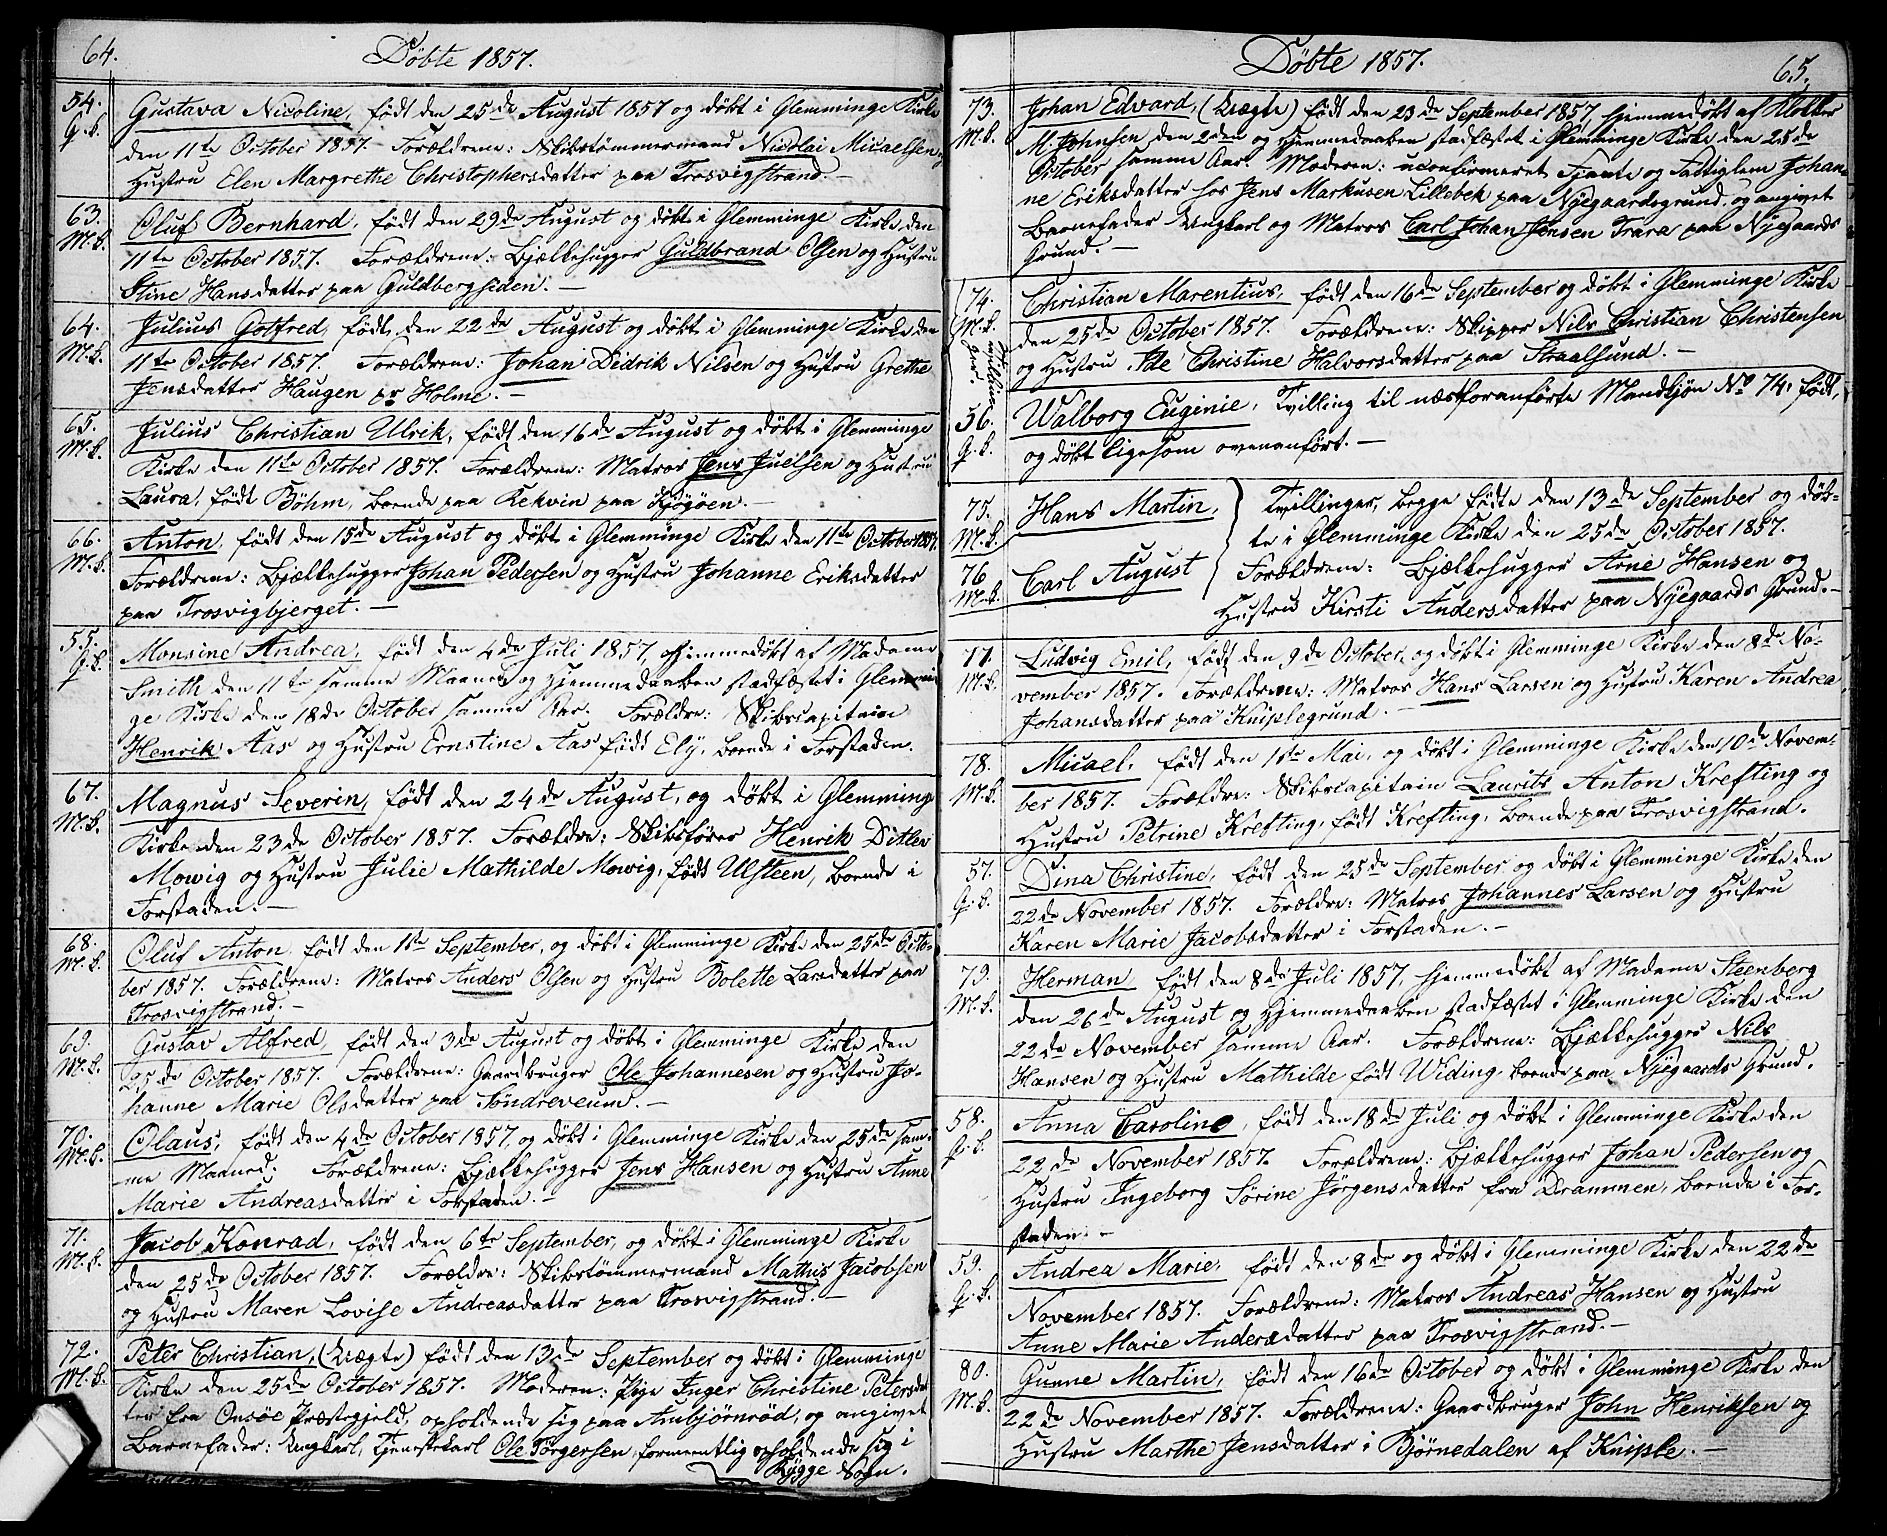 64.
Döbte 1857.
54. Gustava Nicoline, födt den 25de August 1857 og döbt i Glemminge Kirke
G.b. den 11te October 1857. Forældrene: Skibstömmermand Nicolai Micaelsen og
Hustru Elen Margrethe Christophersdatter paa Trosvigstrand. —
63. Oluf Bernhard, födt den 29de August og döbt i Glemminge Kirke den
M.b. 11te October 1857. Forældrene: Bjælkehugger Guldbrand Olsen og Hustru
Stine Hansdatter paa Guldbergsiden. —
64. Julius Gotfred, födt den 22de August og döbt i Glemminge Kirke den
M.b. 11te October 1857. Forældrene: Johan Didrik Nilsen og Hustru Grethe
Jensdatter Haugen pr Holme. —
65. Julius Christian Ulrik, födt den 16de August og döbt i Glemminge
M.b. Kirke den 11te October 1857. Forældrene: Matros Jens Juelsen og Hustru
Laura, födt Böhm, boende paa Rekvin paa Kjögöen. —
66. Anton, födt den 15de August og döbt i Glemminge Kirke den 11te October 1857.
M.b. Forældrene: Bjælkehugger Johan Pedersen og Hustru Johanne Eriksdatter
paa Trosvigbjerget. —
55. Monsine Andrea, födt den 4de Juli 1857, hjemmedöbt af Madame
G.b. Smith den 11te samme Maaned og Hjemmedaaben stadfæstet i Glemmin-
ge Kirke den 18de October samme Aar. Forældre: Skibscapitain
Henrik Aas og Hustru Ernstine Aas födt Ely, boende i Forstaden.
67. Magnus Severin, födt den 24de August, og döbt i Glemminge
M.b. Kirke den 23de October 1857. Forældre: Skibsförer Henrik Ditlev
Mowig og Hustru Julie Mathilde Mowig, födt Ulsteen, boende i
Forstaden. —
68. Oluf Anton, födt den 1ste September, og döbt i Glemminge Kirke den 25de Octo-
M.b. ber 1857. Forældrene: Matros Anders Olsen og Hustru Bolette Larsdatter paa
Trosvigstrand. —
69. Gustav Alfred, födt den 3de August og döbt i Glemminge Kirke den
M.b. 25de October 1857. Forældrene: Gaardbruger Ole Johannesen og Hustru Jo-
hanne Marie Olsdatter paa Söndreveum. —
70. Olaus, födt den 4de October 1857 og döbt i Glemminge Kirke den 25de sam-
M.b. me Maaned. Forældrene: Bjælkehugger Jens Hansen og Hustru Anne
Marie Andreasdatter i Forstaden. —
71. Jacob Konrad, födt den 6te September, og döbt i Glemminge Kirke
M.b. den 25de October 1857. Forældre: Skibstömmermand Mathis Jacobsen
og Hustru Maren Lovise Andreasdatter paa Trosvigstrand. —
72. Peter Christian, (Uægte) födt den 13de September og döbt i Glemminge
M.b. Kirke den 25de October 1857. Moderen: Pige Inger Christine Petersdat-
ter fra Onsöe Præstegjeld, opholdende sig paa Ambjörnröd, og angivet
Barnefader: Ungkarl, Tjenestekarl Ole Törgersen, formeentlig opholdende sig i
Rygge Sogn.
Döbte 1857.
65.
73. Johan Edvard, (Uægte) födt den 23de September 1857, hjemmedöbt af Klokker
M.b. M. Johnsen den 2den og Hjemmedaaben stadfæstet i Glemminge Kirke den 25de
October samme Aar. Moderen: uconfirmeret Tjente og Fattiglem Johan-
ne Eriksdatter hos Jens Markusen Lillebek paa Nyegaardsgrund, og angivet
Barnefader Ungkarl og Matros Carl Johan Jensen Trara paa Nyegaards
Grund. —
74. Christian Marentius, födt den 16de September og döbt i Glemminge Kirke
M.b. den 25de October 1857. Forældrene: Skipper Nils Christian Christensen
og Hustru Ide Christine Halvorsdatter paa Straalsund. —
56. Walborg Euginie, Tvilling til næstforanförte Mandkjön No 74, födt,
G.b. og döbt ligesom ovenanfört. —
75. Hans Martin, Tvillinger, begge födte den 13de September og döb-
M.b. te i Glemminge Kirke den 25de October 1857.
76 Carl August Forældrene: Bjælkehugger Arne Hansen og
M.b. Hustru Kirsti Andersdatter paa Nyegaards Grund. —
77. Ludvig Emil, födt den 9de October, og döbt i Glemminge Kirke den 8de No-
M.b. vember 1857. Forældrene: Matros Hans Larsen og Hustru Karen Andrea
Johansdatter paa Kniplegrund. —
78. Micael, födt den 1ste Mai, og döbt i Glemminge Kirke den 10de Novem-
M.b. ber 1857. Forældre: Skibscapitain Laurits Anton Krefting og
Hustru Petrine Krefting, födt Krefting, boende paa Trosvigstrand.
57. Dina Christine, födt den 25de September og döbt i Glemminge Kirke den
G.b. 22de November 1857. Forældre: Matros Johannes Larsen og Hustru
Karen Marie Jacobsdatter i Forstaden. —
79. Herman, födt den 8de Juli 1857, hjemmedöbt af Madame Steenberg
M.b. den 26de August og Hjemmedaaben stadfæstet i Glemminge Kirke den
22de November samme Aar. Forældrene: Bjælkehugger Nils
Hansen og Hustru Mathilde födt Widing, boende paa Nyegaards Grund.
58. Anna Caroline, födt den 18de Juli og döbt i Glemminge Kirke den
G.b. 22de November 1857. Forældrene: Bjælkehugger Johan Pedersen og
Hustru Ingeborg Sorine Jörgensdatter fra Drammen, boende i For-
staden. —
59. Andrea Marie, födt den 8de og döbt i Glemminge Kirke den 22de
G.b. November 1857. Forældrene: Matros Andreas Hansen og Hustru
Anne Marie Andersdatter paa Trosvigstrand. —
80. Gunne Martin, födt den 16de October og döbt i Glemminge Kirke den
M.b. 22de November 1857. Forældrene: Gaardbruger John Henriksen og
Hustru Marthe Jensdatter i Björnedalen af Kniple. —